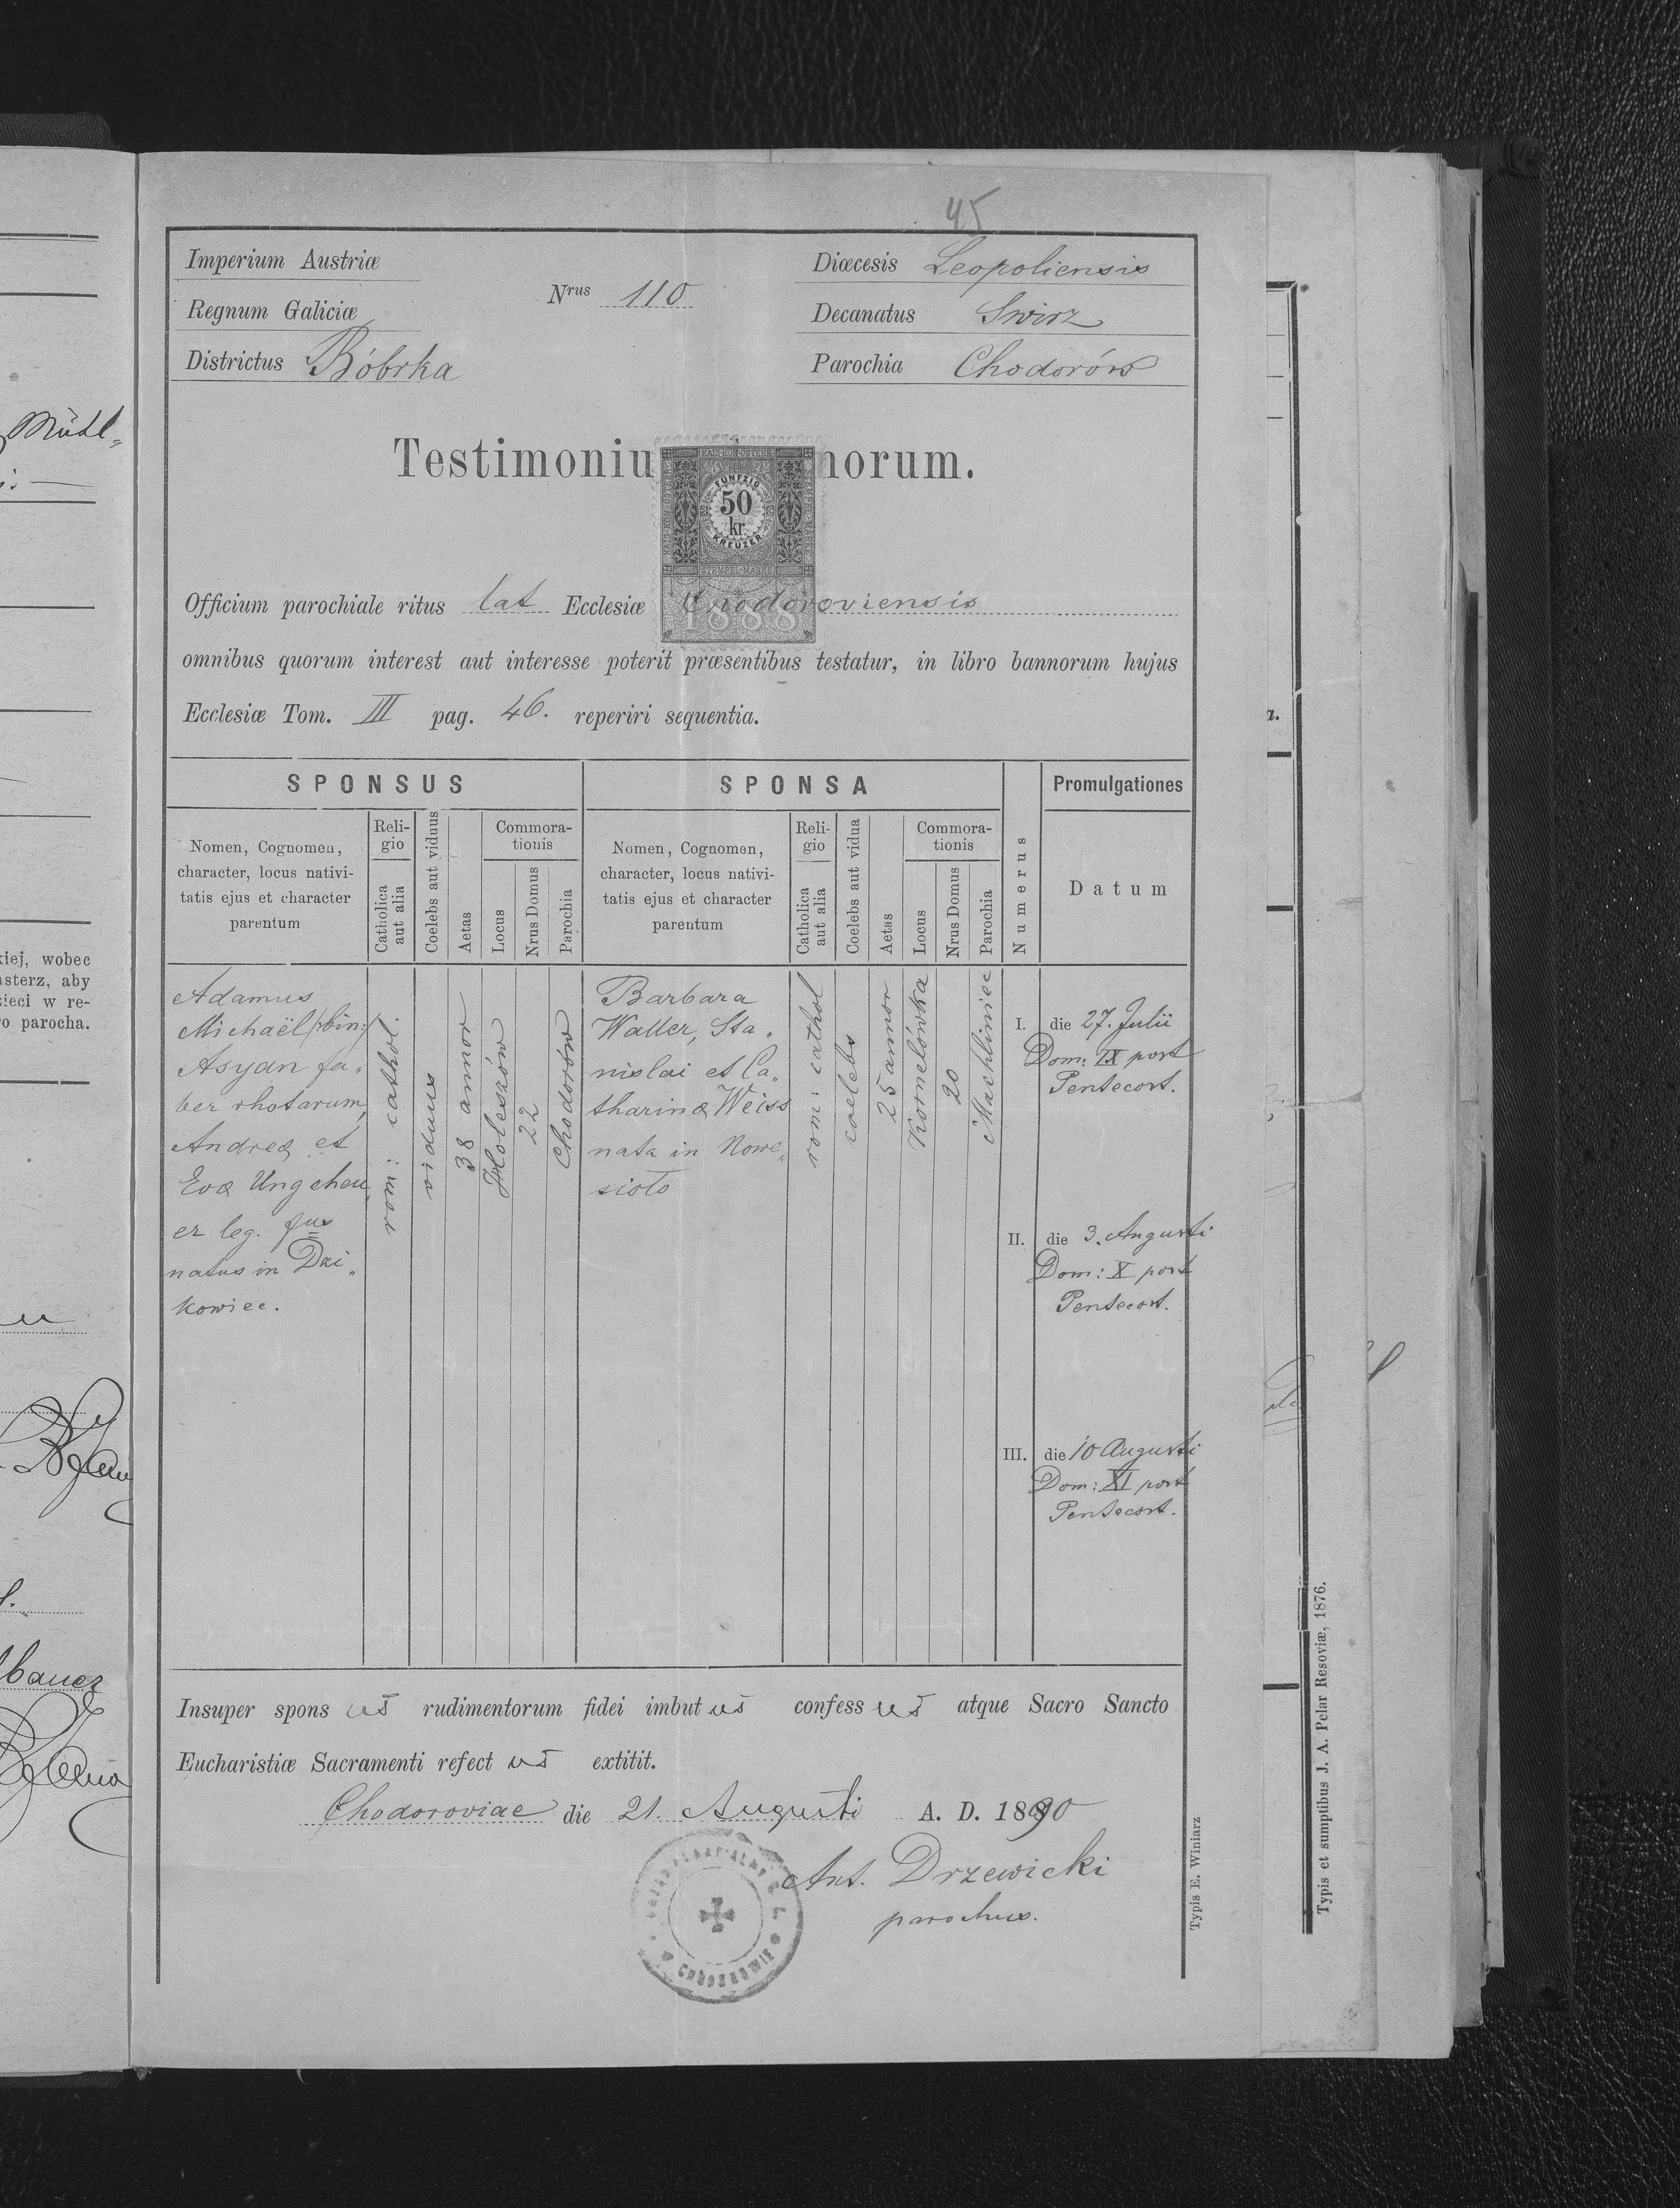 45
Imperium Austriæ
Regnum Galiciæ
Districtus Bóbrka
Nrus 110
Diœcesis Leopoliensis
Decanatus Swirz
Parochia Chodorów
Testimoniu norum.
FÜNFZIG
50
kr.
KREUZER
STEMPEL-MARKE
1888
Officium parochiale ritus lat Ecclesiæ Chodoroviensis
omnibus quorum interest aut interesse poterit præsentibus testatur, in libro bannorum hujus
Ecclesiæ Tom. III pag. 46. reperiri sequentia.
SPONSUS
Nomen, Cognomen,
character, locus nativi-
tatis ejus et character
parentum
Reli-
gio
Catholica
aut alia
Coelebs aut viduus
Aetas
Commora-
tionis
Locus
Nrus Domus
Parochia
SPONSA
Nomen, Cognomen,
character, locus nativi-
tatis ejus et character
parentum
Reli-
gio
Catholica
aut alia
Coelebs aut vidua
Aetas
Commora-
tionis
Locus
Nrus Domus
Parochia
Numerus
Promulgationes
Datum
Adamus
Michaël /:bin:/
Asyan fa„
ber rhotarum,
Andreæ et
Evæ Ungeheu„
er leg. fus
natus in Dzi„
kowiec.
rom: cathol.
viduus
38 annor
Holeszów
22
Chodorów
Barbara
Waller, Sta„
nislai et Ca„
tharinæ Weiss
nata in Nowe„
sioło
rom: cathol
coelebs
25 annor
Kornelówka
20
Machliniec
I. die 27. Julii
Dom: IX post
Pentecost.
II. die 3. Augusti
Dom: X post
Pentecost.
III. die 10 Augusti
Dom: XI post
Pentecost.
Insuper spons us rudimentorum fidei imbut us confess us atque Sacro Sancto
Eucharistiæ Sacramenti refect us extitit.
Chodoroviae die 21. Augusti A. D. 1890
Ant. Drzewicki
parochus.
Typis E. Winiarz
Typis et sumptibus J. A. Pelar Resoviæ, 1876.
a.
Mühl„
kiej, wobec
asterz, aby
zieci w re-
o parocha.